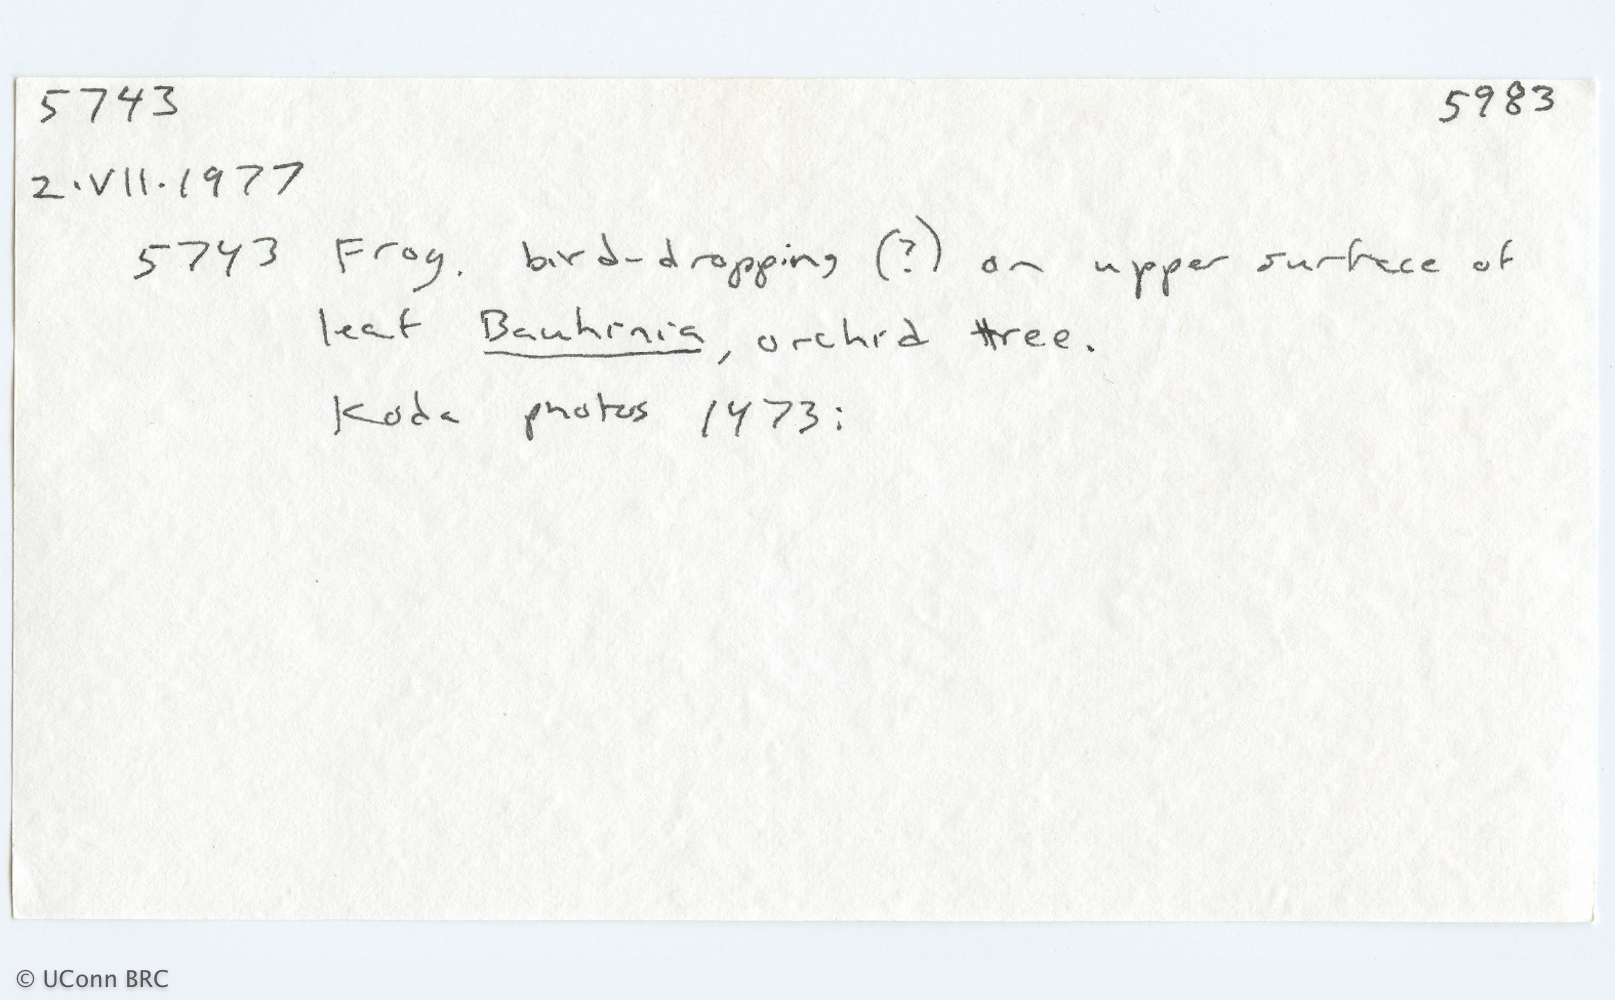 5743 5983
2.VII.1977
5743 Frog. bird-dropping (?) on upper surface of
leaf Bauhinia, orchid tree.
Koda photos 1473:
© UConn BRC